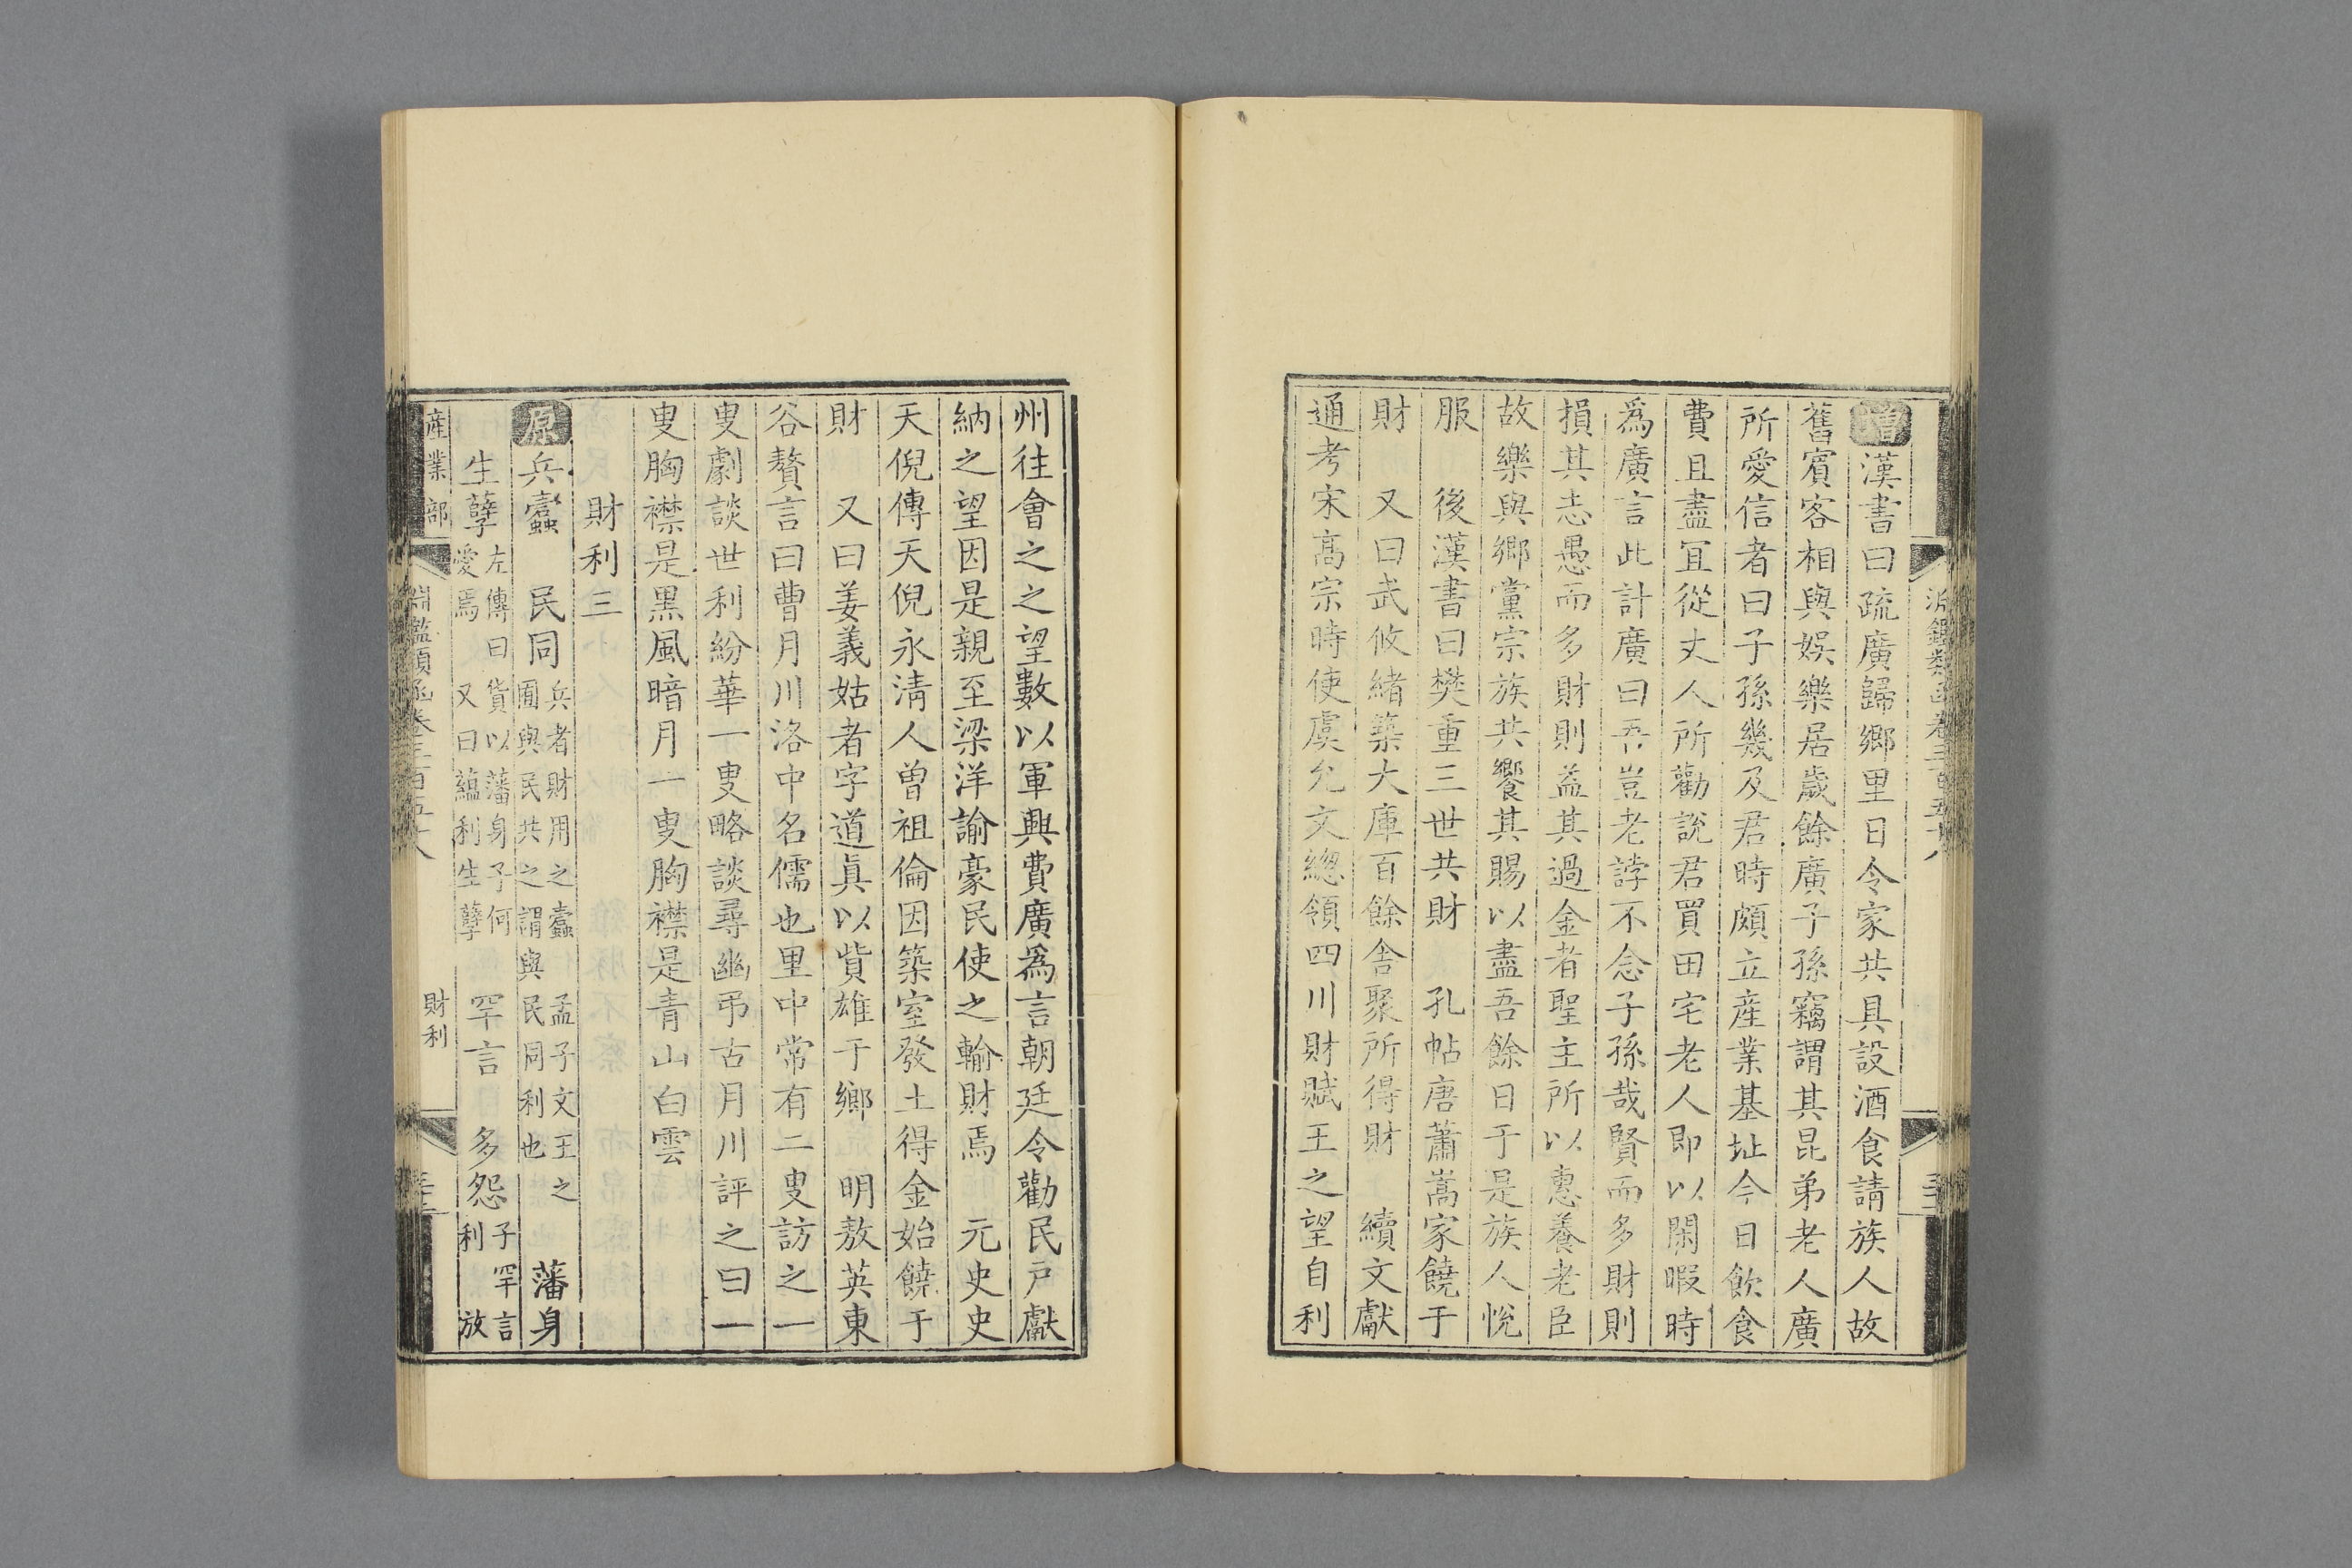 淵鑑類函卷三百五十八
增漢書曰疏廣歸鄉里日令家共具設酒食請族人故
舊賓客相與娛樂居歲餘廣子孫竊謂其昆弟老人廣
所愛信者曰子孫幾及君時頗立産業基址今日飲食
費且盡宜從丈人所勸說君買田宅老人即以閑暇時
爲廣言此計廣曰吾豈老誖不念子孫哉賢而多財則
損其志愚而多財則益其過金者聖主所以惠養老臣
故樂與鄉黨宗族共饗其賜以盡吾餘日于是族人悅
服　後漢書曰樊重三世共財　孔帖唐蕭嵩家饒于
財　又曰武攸緒築大庫百餘舍聚所得財　續文獻
通考宋高宗時使虞允文總領四川財賦王之望自利
州往會之之望數以軍興費廣爲言朝廷令勸民戸獻
納之望因是親至梁洋諭豪民使之輸財焉　元史史
天倪傳天倪永清人曾祖倫因築室發土得金始饒于
財　又曰姜義姑者字道真以貲雄于鄉　明敖英東
谷贅言曰曹月川洛中名儒也里中常有二叟訪之一
叟劇談世利紛華一叟略談尋幽弔古月川評之曰一
叟胸襟是黑風暗月一叟胸襟是青山白雲
財利三
原兵蠹　民同兵者財用之蠹　孟子文王之
囿與民共之謂與民同利也　藩身
生孽左傳曰貨以藩身子何
愛焉　又曰蘊利生孽　罕言　多怨子罕言
利　放
産業部　淵鑑類函卷三百五十八　財利